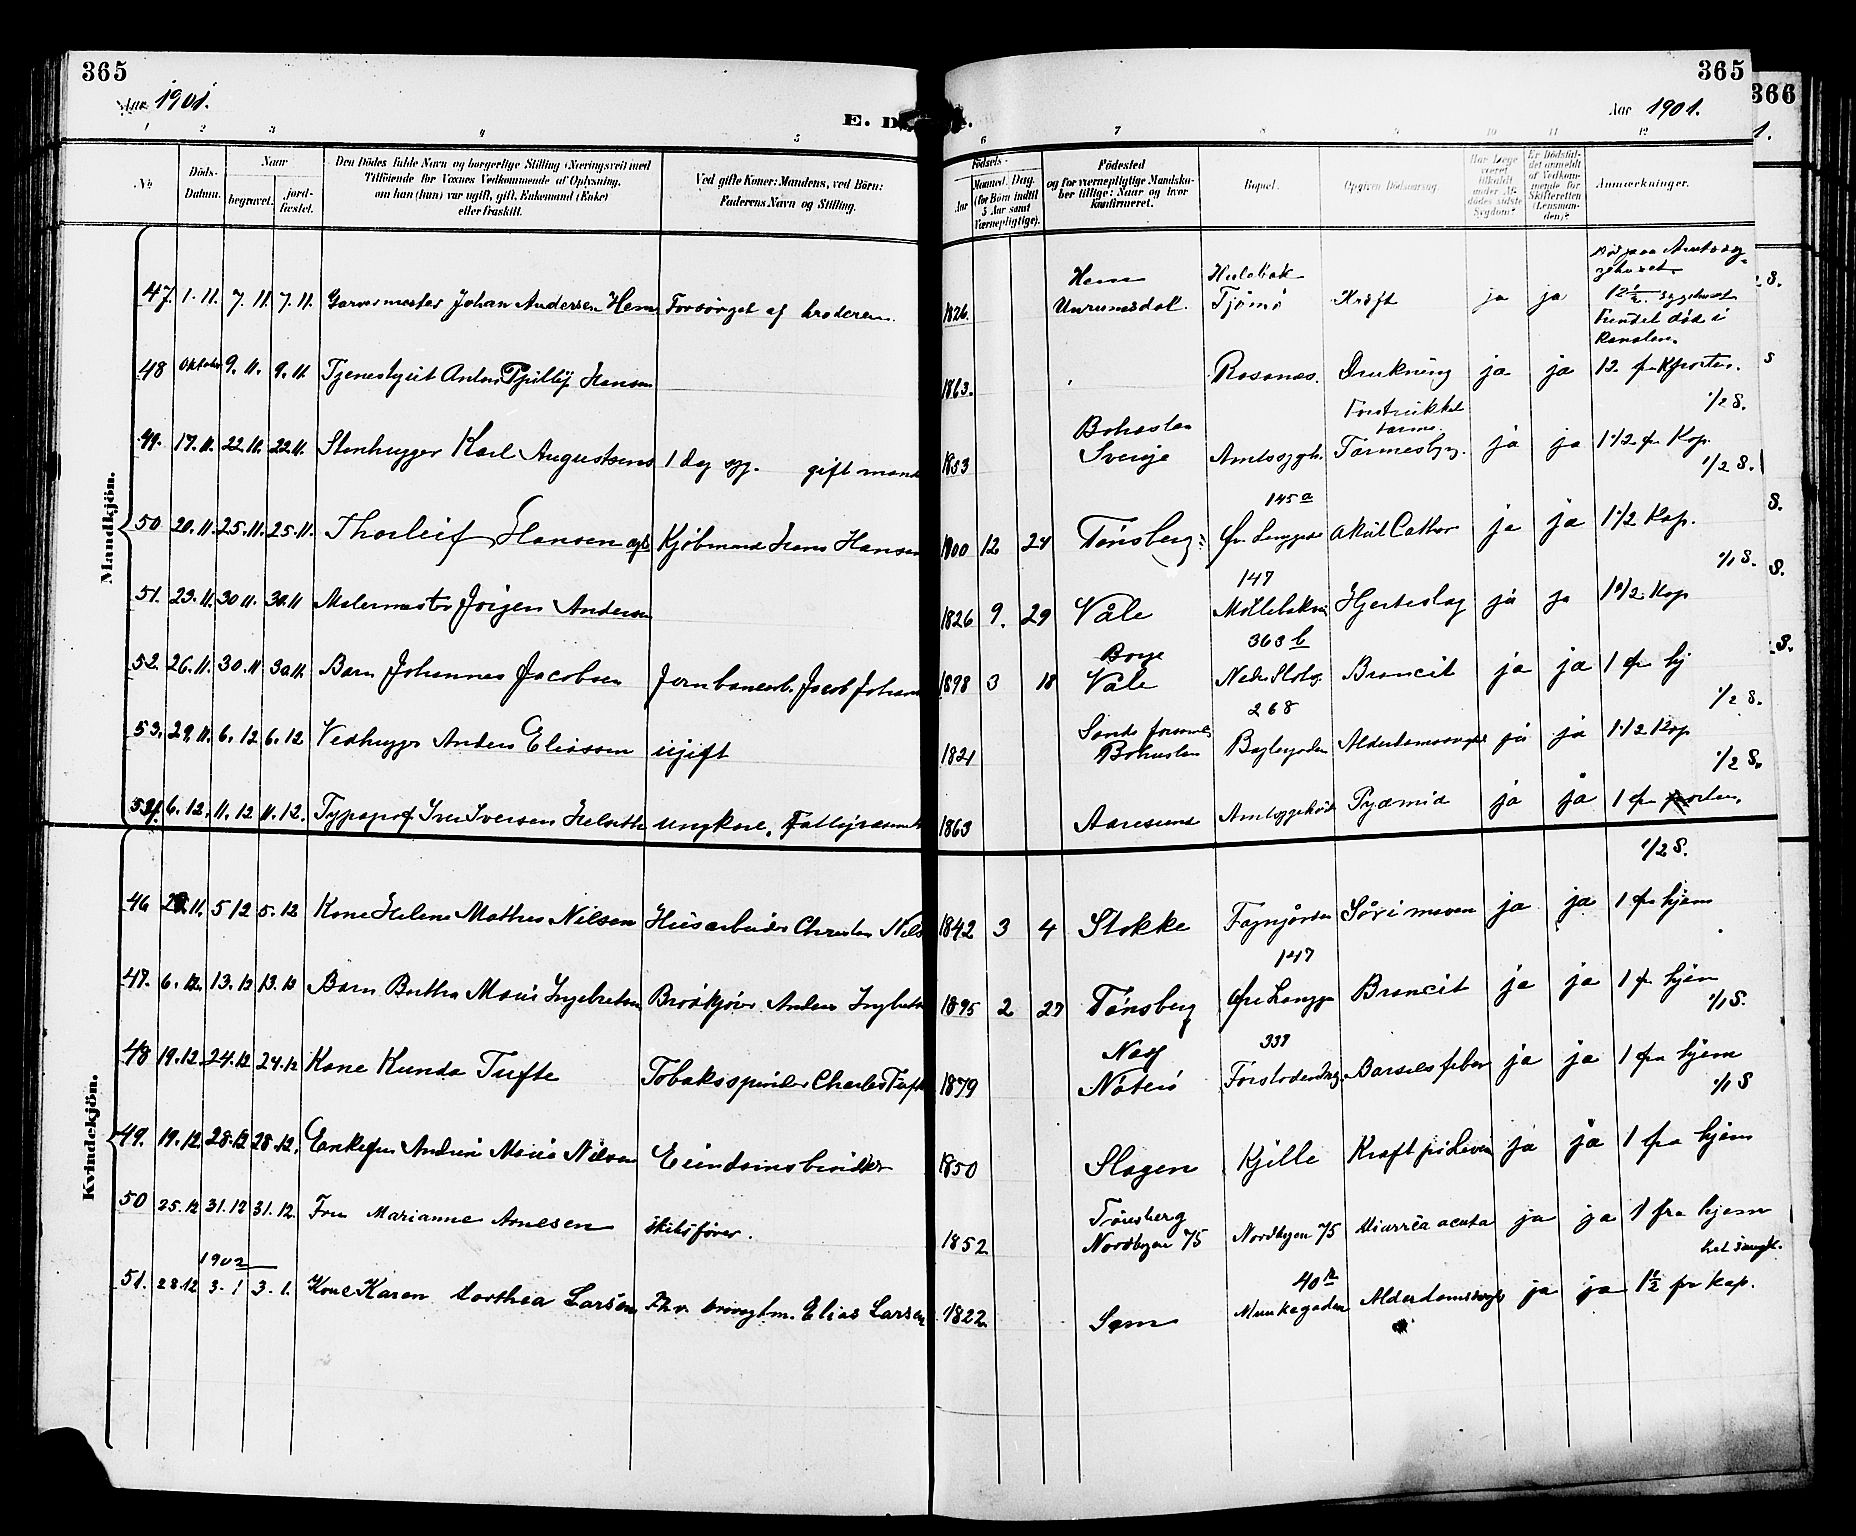 365
365
366
Aar 1901.
Aar 1901.
E. D
1 2 3 4 5 6 7 8 9 10 11 12
No.
Döds-Datum.
Naar
begravet.
jord-fæstet.
Den Dödes fulde Navn og borgerlige Stilling (Næringsvei) med
Tilföiende for Voxnes Vedkommende af Oplysning,
om han (hun) var ugift, gift, Enkemand (Enke)
eller fraskilt.
Ved gifte Koner: Mandens, ved Börn:
Faderens Navn og Stilling.
Födsels-
Aar
Maaned. Dag.
(for Börn indtil
5 Aar samt
Værnepligtige).
Födested
og for værnepligtige Mandska-
ber tillige: Naar og hvor
konfirmeret.
Bopæl.
Opgiven Dödsaarsag.
Har Læge
været
tilkaldt
under Af-
dödes sidste
Sygdom?
Er Dödsfal-
det anmeldt
af Vedkom-
mende for
Skifteretten
(Lensman-
den)?
Anmærkninger.
Mandkjön.
47. 1.11. 7.11. 7.11. Garvermester Johan Andersen Hem Forsörget af broderen. 1826. Hem Tjømø Kræft ja ja
Fundet död i
Kanalen.
48 Oktober 9.11. 9.11. Tjenestgut Anton Hansen 1863. Rosanes. Drukning ja ja 12
1/2 S.
49. 17.11. 22.11. 22.11. Stenhugger Karl Augustsens 1 dag syg. gift mand 1853 Bohuslen Sverige Amtssygh. ja ja 1 1/2 fr Kap.
1/2 S.
50 20.11. 25.11. 25.11. Thorleif Hansen Kjöbmand Hans Hansen 1900 12 24 Tønsberg 145 a Akut Cathar ja ja 1 1/2 Kap.
1/1 S.
51. 23.11. 30.11. 30.11 Malermester Jörgen Andersen 1826 9. 29 Våle 147 Hjerteslag ja ja 1 1/2 Kap
52. 26.11. 30.11 30.11. Barn Johannes Jacobsen Jernbanearb. Jacob Johans 1898 3 18 Våle 363 b Broncit ja ja 1 fr hj
1/2 S.
53. 29.11. 6.12 6.12 Vedhugger Anders Eliassen ugift 1821 Bohuslen 268 ja ja 1 1/2 Kap
1/2 S.
54. 6.12. 11.12 11.12. Typograf Iver Iversen ungkarl. 1863 Aaresund Pyæmia ja ja 1 fr
1/2 S.
Kvindekjön.
46 28.11. 5 12 5.12 Kone Helene Mathea Nilsen Husarbeider Christen Nils 1842 3 4 Stokke Sår i maven ja ja 1 fr hjem
47. 6.12. 13.12 13.12 Barn Bertha Marie Ingebretsen Anders 1895 2 27 Tönsberg 147 Broncit ja ja 1 fr hjem
1/1 S.
48 19.12 24.12 24.12 Kone Kunda Tufte Tobaksspinder Charles Tufte 1879 Nøterø 339 Barselsfeber ja ja 1 fra hjem
1/1 S
49. 19.12 28.12 28.12. Enkefru Andrine Marie Nilsen 1850 Slagen Kjelle Kræft på Leveren ja ja 1 fra hjem
50 25.12 31.12 31.12. Fru Marianne Arnesen skibsfører. 1852 Tønsberg Nordbyen 75 Nordbyen 75 Diarrèa acuta ja ja 1 fra hjem
1902
51. 28.12 3.1 3.1. Kone Karen Dorthea Larsen Elias Larsen 1822 Sem 40 Munkegaden Alderdomssvagh. ja ja 1 1/2 fr Kap.